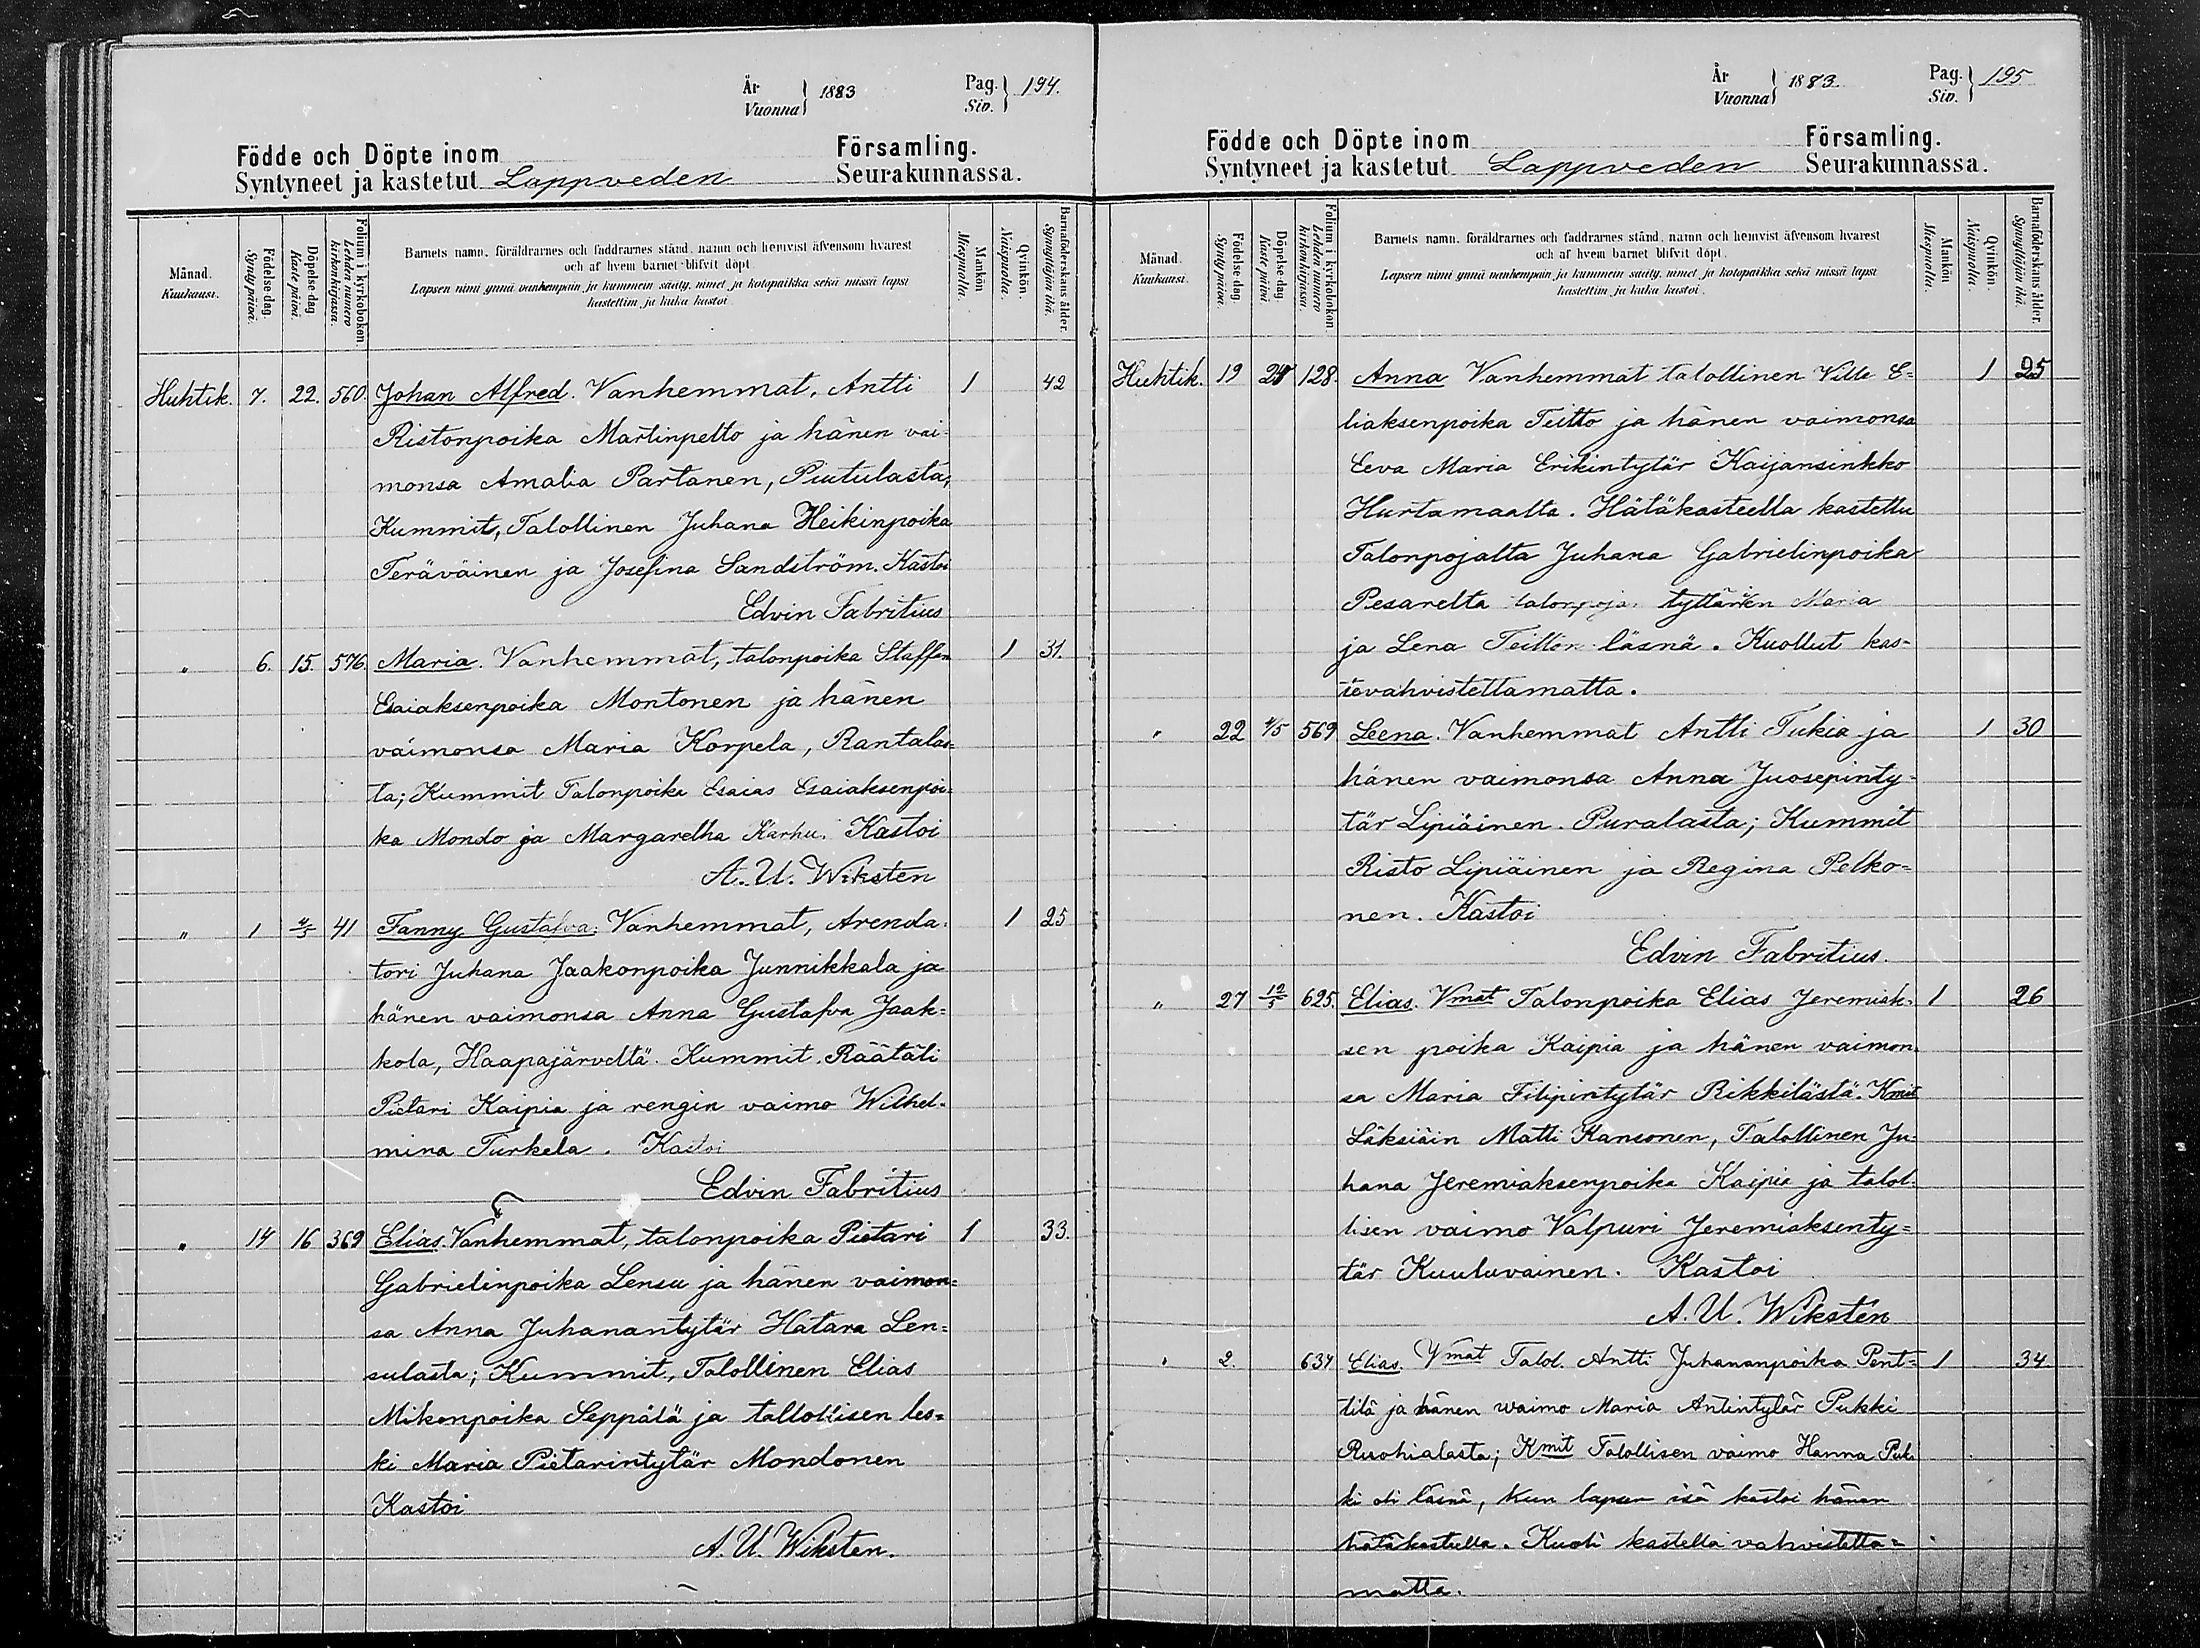 År
Vuonna } 1883
Pag.
Siv. } 194.
Födde och Döpte inom Församling.
Syntyneet ja kastetut Lappveden Seurakunnassa.
Månad.
Kuukausi.
Födelse dag.
Synty päivä.
Döpelse dag
Kaste päivä.
Folium i kyrkoboken
Lehden numero
kirkonkirjassa.
Barnets namn, föräldrarnes och faddrarnes stånd, namn och hemvist äfvensom hvarest
och af hvem barnet blifvit döpt
Lapsen nimi ynnä vanhempain ja kummein sääty, nimet ja kotopaikka sekä missä lapsi
kastettiin ja kuka kastoi
Mankön
Miespuolia.
Qvinkön.
Naispuolia.
Barnaföderskans ålder.
Synnyttäjän ikä.
Huhtik. 7. 22. 560. Johan Alfred. Vanhemmat, Antti 1 42
Ristonpoika Martinpelto ja hänen vai-
monsa Amalia Partanen, Piutulasta,
Kummit, Talollinen Juhana Heikinpoika
Teräväinen ja Josefina Sandström. Kastoi
Edvin Fabritius
" 6. 15. 576. Maria. Vanhemmat, talonpoika Staffan 1 31.
Esaiaksenpoika Montonen ja hänen
vaimonsa Maria Korpela, Rantalas-
ta; Kummit Talonpoika Esaias Esaiaksenpoi-
ka Mondo ja Margaretha Karhu. Kastoi
A. U. Wiksten
" 1 4/5 41 Fanny Gustafva. Vanhemmat, Arenda- 1 25
tori Juhana Jaakonpoika Junnikkala ja
hänen vaimonsa Anna Gustafva Jaak-
kola, Haapajärveltä. Kummit. Räätäli
Pietari Kaipia ja rengin vaimo Wilhel-
mina Turkela. Kastoi
Edvin Fabritius
" 14 16 369 Elias. Vanhemmat, talonpoika Pietari 1 33.
Gabrielinpoika Lensu ja hänen vaimon-
sa Anna Juhanantytär Hatara Len-
sulasta; Kummit, Talollinen Elias
Mikonpoika Seppälä ja tallollisen les-
ki Maria Pietarintytär Mondonen
Kastoi
A. U. Wiksten.
År
Vuonna } 1883.
Pag.
Siv. } 195
Födde och Döpte inom Församling.
Syntyneet ja kastetut Lappveden Seurakunnassa.
Månad
Kuukausi.
Födelse dag.
Synty päivä.
Döpelse dag.
Kaste päivä.
Folium i kyrkoboken
Lehden numero
kirkonkirjassa.
Barnets namn, föräldrarnes och faddrarnes stånd, namn och hemvist äfvensom hvarest
och af hvem barnet blifvit döpt.
Lapsen nimi ynnä vanhempain ja kummein sääty, nimet ja kotopaikka sekä missä lapsi
kastettiin ja kuka kastoi.
Mankön
Miespuolia.
Qvinkön.
Naispuolia.
Barnaföderskans ålder.
Synnyttäjän ikä.
Huhtik. 19 128. Anna Vanhemmat talollinen Ville E- 1 25
liaksenpoika Teitto ja hänen vaimonsa
Eeva Maria Erikintytär Kaijansinkko
Hurtamaalta. Hätäkasteella kastettu
Talonpojalta Juhana Gabrielinpoika
Pesarelta talonpoja tyttärien Maria
ja Lena Teitton läsnä. Kuollut kas-
tevahvistettamatta.
" 22 4/5 569 Leena. Vanhemmat Antti Tukia ja 1 30
hänen vaimonsa Anna Juosepinty-
tär Lipiäinen. Puralasta; Kummit
Risto Lipiäinen ja Regina Pelko-
nen. Kastoi
Edvin Fabritius.
" 27 12/5 625. Elias. Vmat Talonpoika Elias Jeremiak- 1 26
sen poika Kaipia ja hänen vaimon-
sa Maria Filipintytär Rikkilästä. Kmit
Läksiäin Matti Kansonen, Talollinen Ju-
hana Jeremiaksenpoika Kaipia ja talol-
lisen vaimo Valpuri Jeremiaksenty-
tär Kuuluvainen. Kastoi
A. U. Wikstén
" 2. 634 Elias. Vmat Talol. Antti Juhananpoika Pent- 1 34
tilä ja hänen waimo Maria Antintytär Pukki
Ruohialasta; Kmit Talollisen vaimo Hanna Puk-
ki oli läsnä, kun lapsen isä kastoi hänen
hätäkasteella. Kuoli kastella vahvistetta-
matta.